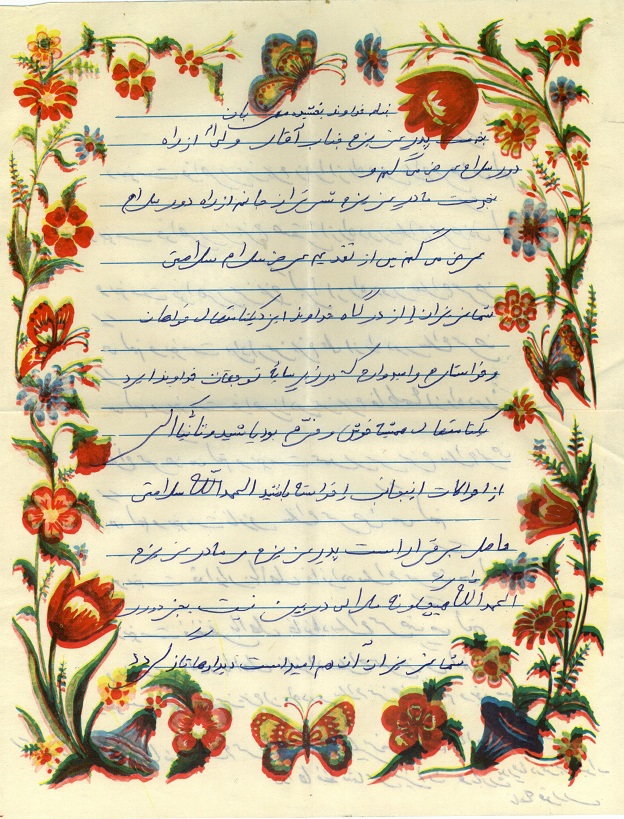 بنام خداوند بخشنده مهربان
بخدمت پدر عزیزم جناب آقای از راه
دور سلام عرض می‌کنم و
بخدمت مادر عزیزم خانم از راه دور سلام
عرض می‌کنم پس از تقدیم عرض سلام سلامتی
شما عزیزان را از درگاه خداوند این یکتا متعال خواهان
و خواستارم و امیدوارم که در زیر سایهٔ توجهات خداوند ایزد
یکتا متعال همیشه خوش و خرم بوده باشید و ثانیا اگر
از احوالات اینجانب را خواسته باشید الحمدالله سلامتی
حاصل برقرار است پدر عزیزم و مادر عزیزم
الحمدالله هیچگونه ملالی در بین نیست بجز دوری
شما عزیزان آن هم امید است دیدارها تازه گردد